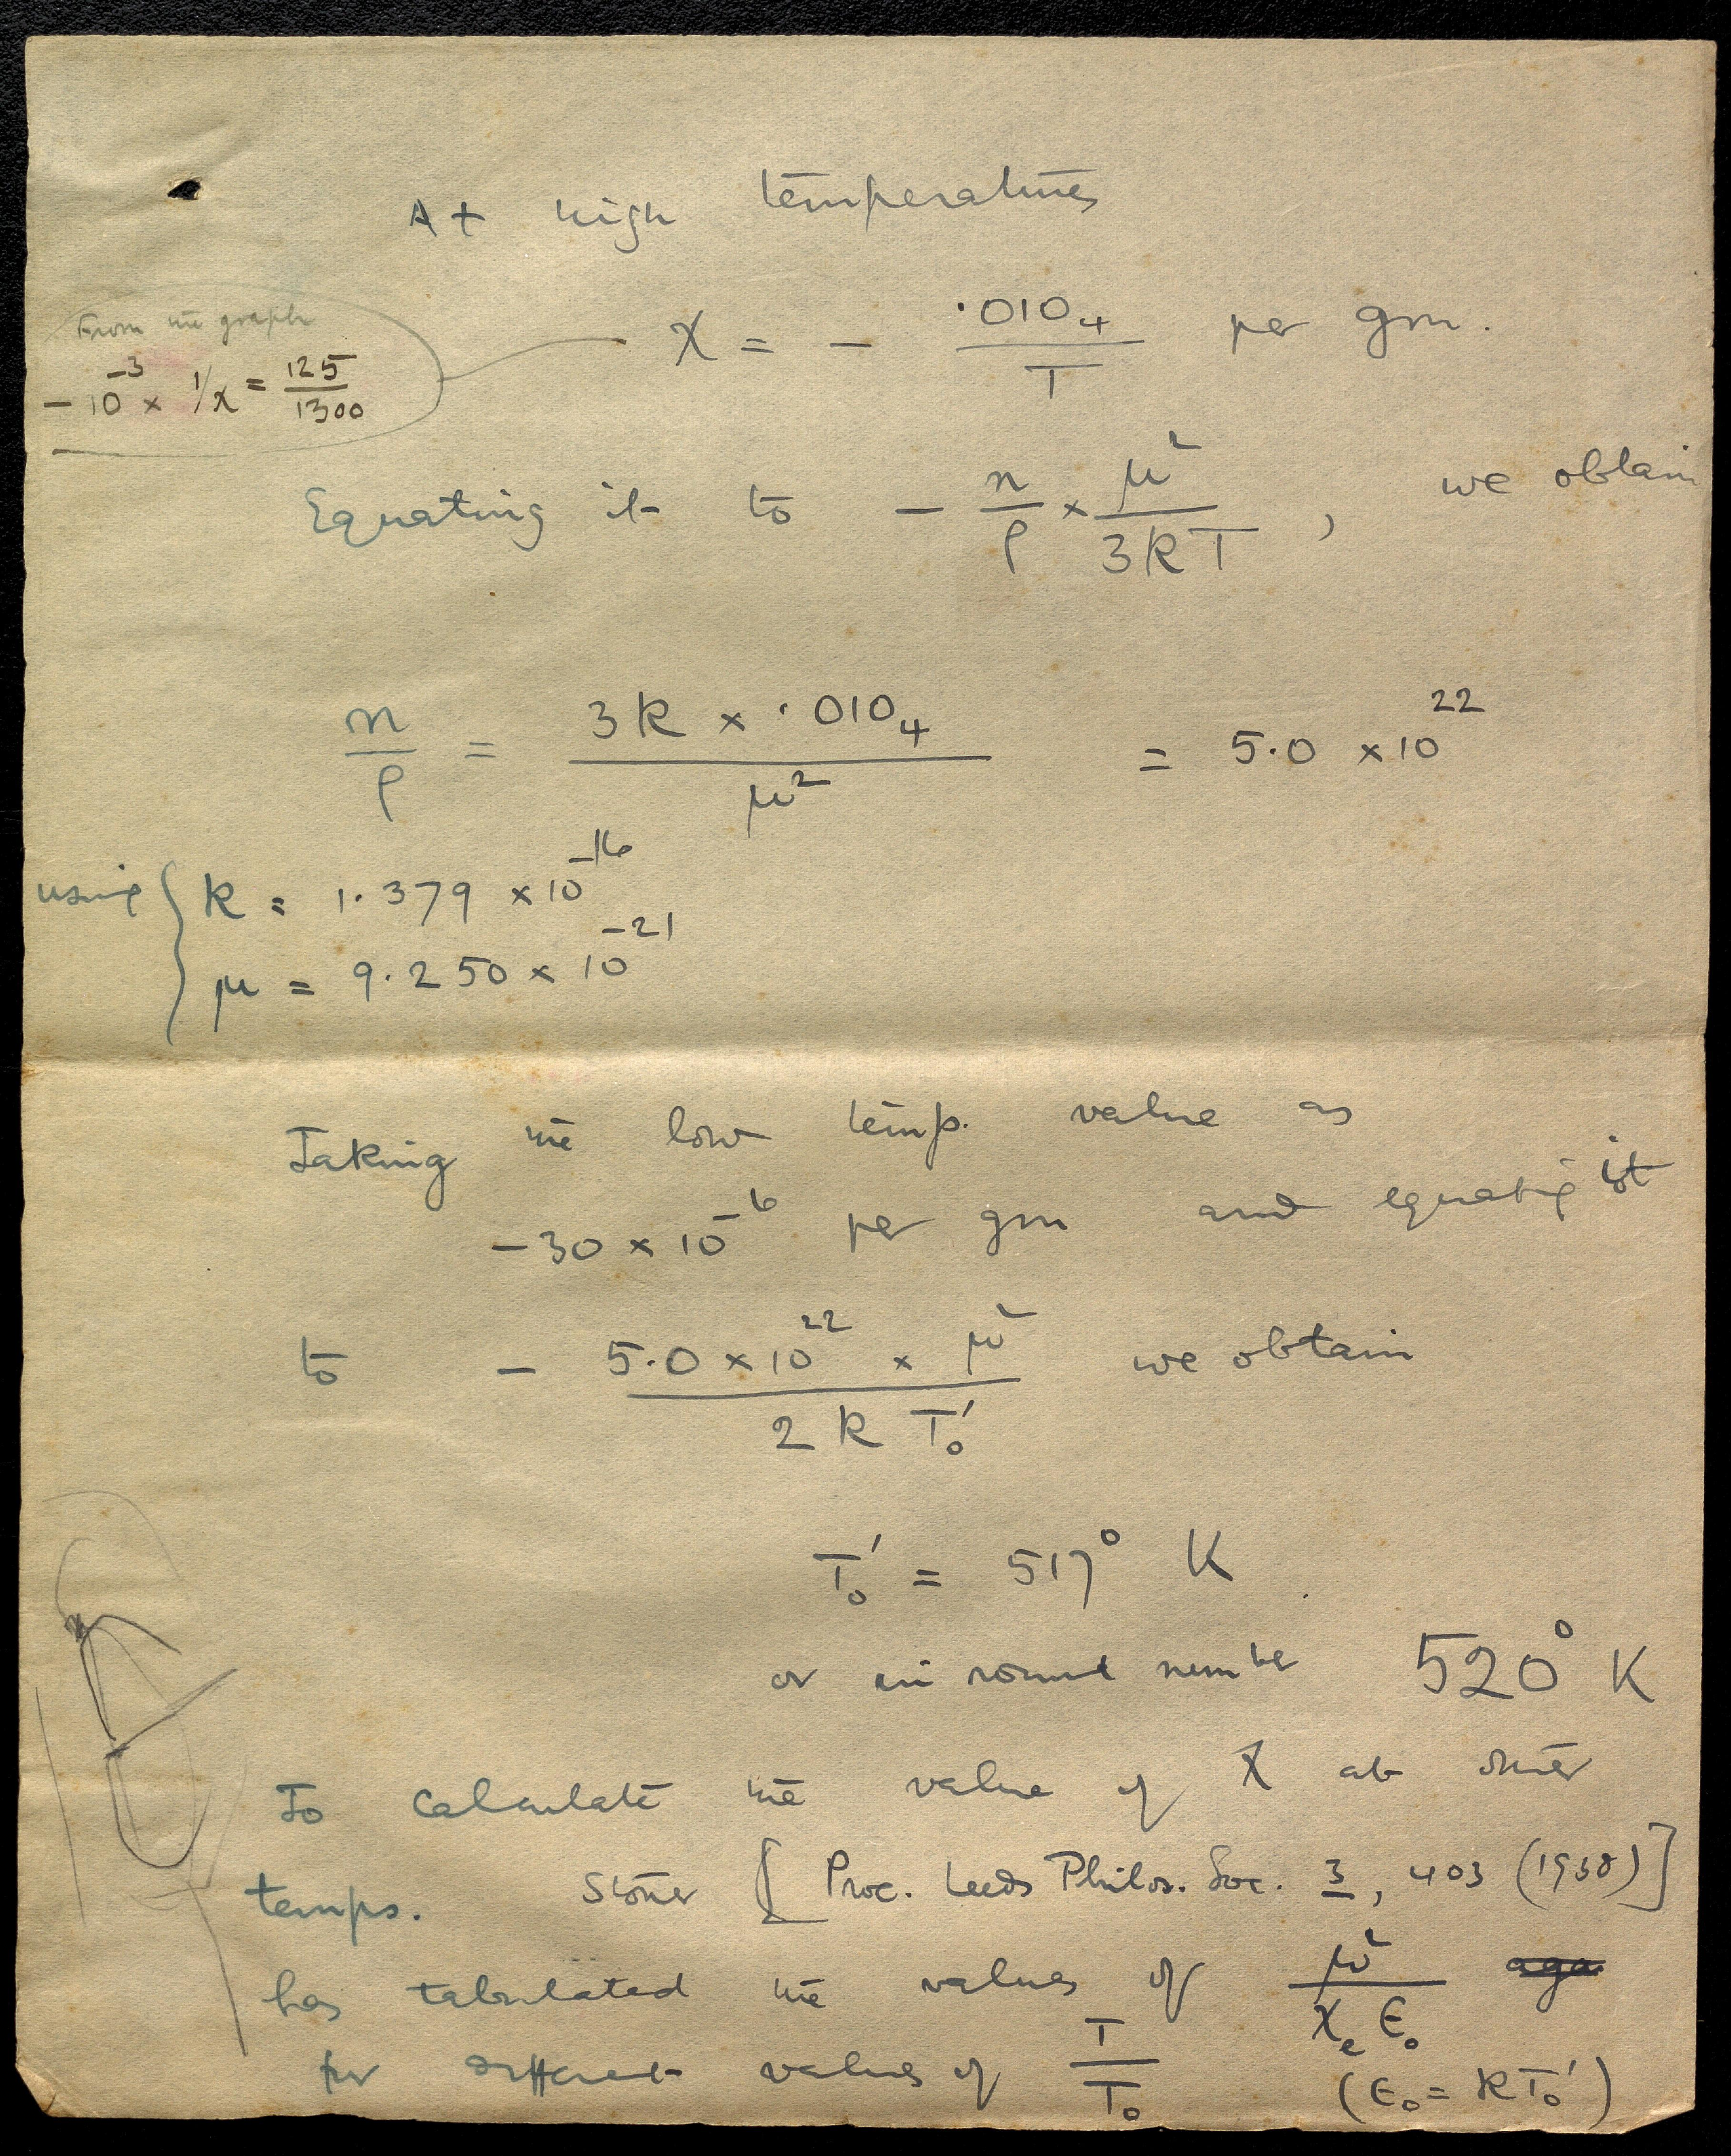 At high temperatures
χ = - ·010₄/T per gm.
From the graph
-10⁻³ × 1/χ = 125/1300
Equating it to - n/ρ × μ²/3kT , we obtain
n/ρ = 3k × ·010₄/μ² = 5.0 × 10²²
using { k = 1.379 × 10⁻¹⁶
μ = 9.250 × 10⁻²¹
Taking the low temp. value as
-30 × 10⁻⁶ per gm and equating it
to - 5.0 × 10²² × μ²/2kT₀′ we obtain
T₀′ = 517° K
or in round number 520° K
To calculate the value of χ at other
temps. Stoner [Proc. Leeds Philos. Soc. 3, 403 (1938)]
has tabulated the values of μ²/χₑ ϵ₀
for different values of T/T₀ (ϵ₀ = kT₀′)